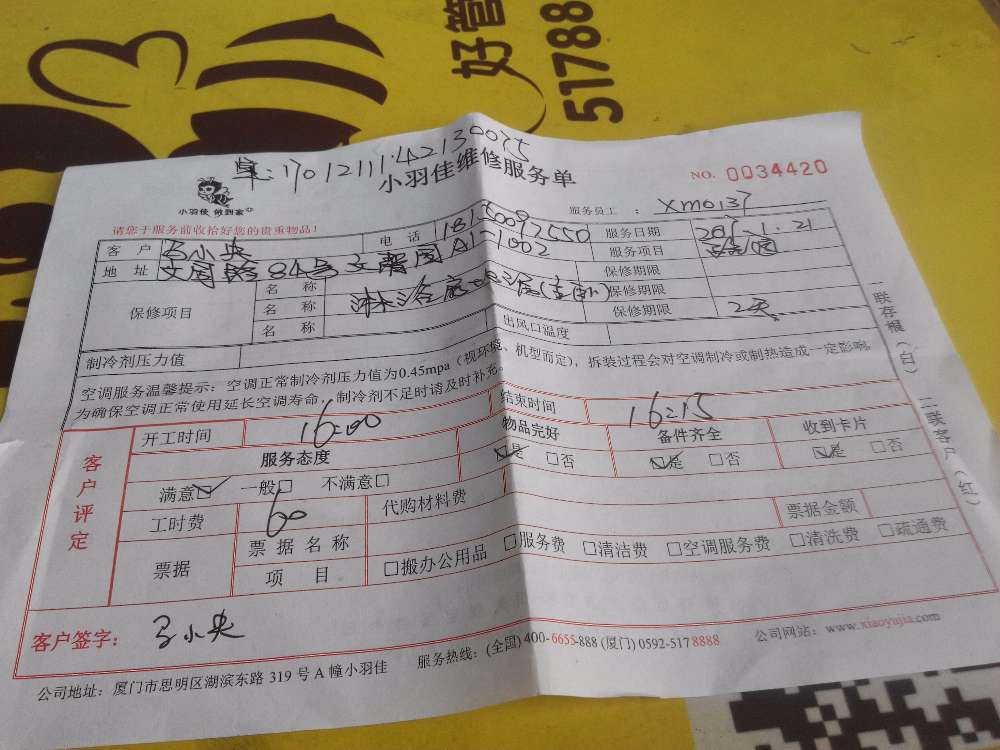 好管
51788
单:1701211142130075
小羽佳维修服务单
NO. 0034420
小羽佳 做到家
服务员工 : XM0137
请您于服务前收拾好您的贵重物品!
客 户 马小央 电 话 18150092550 服务日期 2017.1.21
地 址 文园路84号文馨园A1-1002 服务项目
保修项目 名 称 保修期限
名 称 保修期限
名 称 保修期限 2天
制冷剂压力值 出风口温度
空调服务温馨提示:空调正常制冷剂压力值为0.45mpa(视环境、机型而定),拆装过程会对空调制冷或制热造成一定影响,
为确保空调正常使用延长空调寿命,制冷剂不足时请及时补充。
一联存根(白) 二联客户(红)
客户评定
开工时间 16:00 结束时间 16:15
服务态度 物品完好 备件齐全 收到卡片
满意☑ 一般□ 不满意□ ☑是 □否 ☑是 □否 ☑是 □否
工时费 60 代购材料费 票据金额
票据 票据名称
项 目 □搬办公用品 □服务费 □清洁费 □空调服务费 □清洗费 □疏通费
客户签字: 马小央
公司地址:厦门市思明区湖滨东路 319 号 A 幢小羽佳 服务热线:(全国) 400-6655-888 (厦门) 0592-517 8888 公司网站:www.xiaoyujia.com